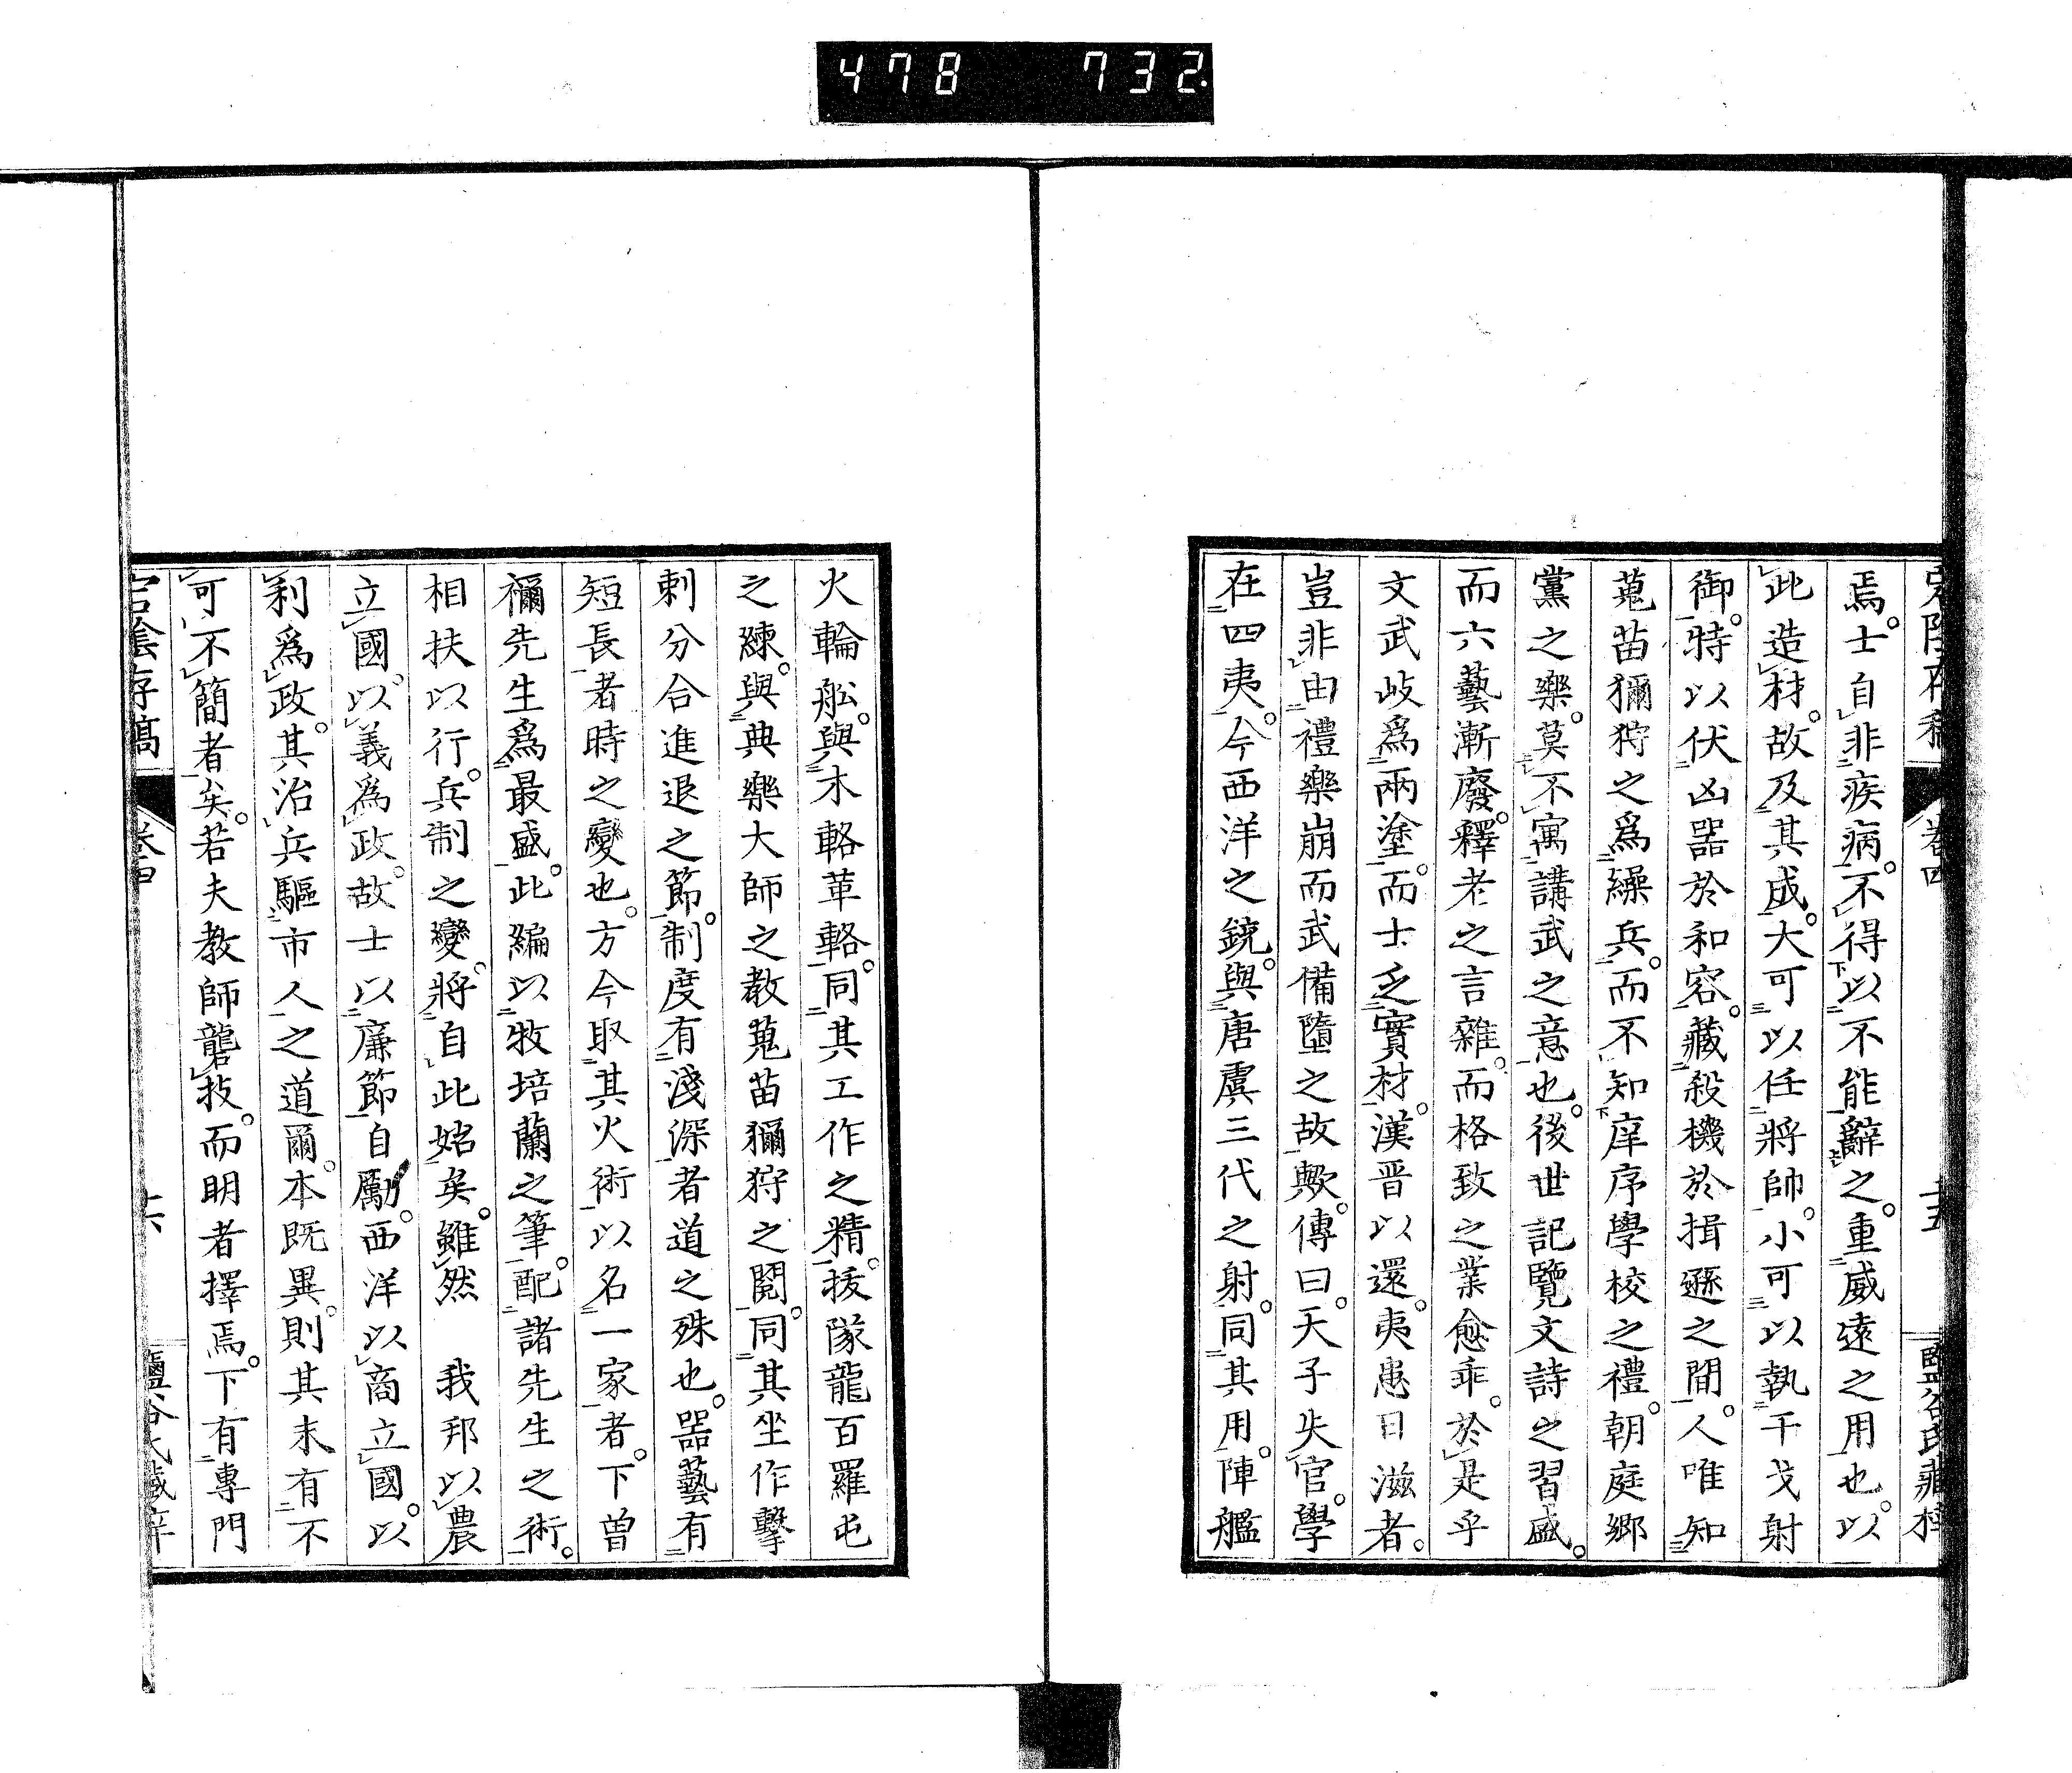 478 732
宕陰存稿 卷四 十五 鹽谷氏藏梓
焉。士自非疾病。不得以不能辭之。重威遠之用也。以
此造材。故及其成。大可以任將帥。小可以執干戈射
御。特以伏凶器於和容。藏殺機於揖遜之間。人唯知
蒐苗獮狩之爲繰兵。而不知庠序學校之禮。朝庭鄉
黨之樂。莫不寓講武之意也。後世記覽文詩之習盛。
而六藝漸廢。釋老之言雜。而格致之業愈乖。於是乎
文武岐爲兩塗。而士乏實材。漢晋以還。夷患日滋者。
豈非由禮樂崩而武備墮之故歟。傳曰。天子失官。學
在四夷。今西洋之銃。與唐虞三代之射。同其用。陣艦
火輪舩。與木輅革輅。同其工作之精。拔隊龍百羅屯
之練。與典樂大師之教蒐苗獮狩之閲。同其坐作擊
刺分合進退之節。制度有淺深者道之殊也。器藝有
短長者時之變也。方今取其火術。以名一家者。下曽
禰先生爲最盛。此編以牧培蘭之筆。配諸先生之術。
相扶以行。兵制之變。將自此始矣。雖然 我邦以農
立國。以義爲政。故士以廉節自勵。西洋以商立國。以
利爲政。其治兵驅市人之道爾。本既異。則其末有不
可不簡者矣。若夫教師礱技。而明者擇焉。下有專門
宕陰存稿 卷四 十六 鹽谷氏藏梓